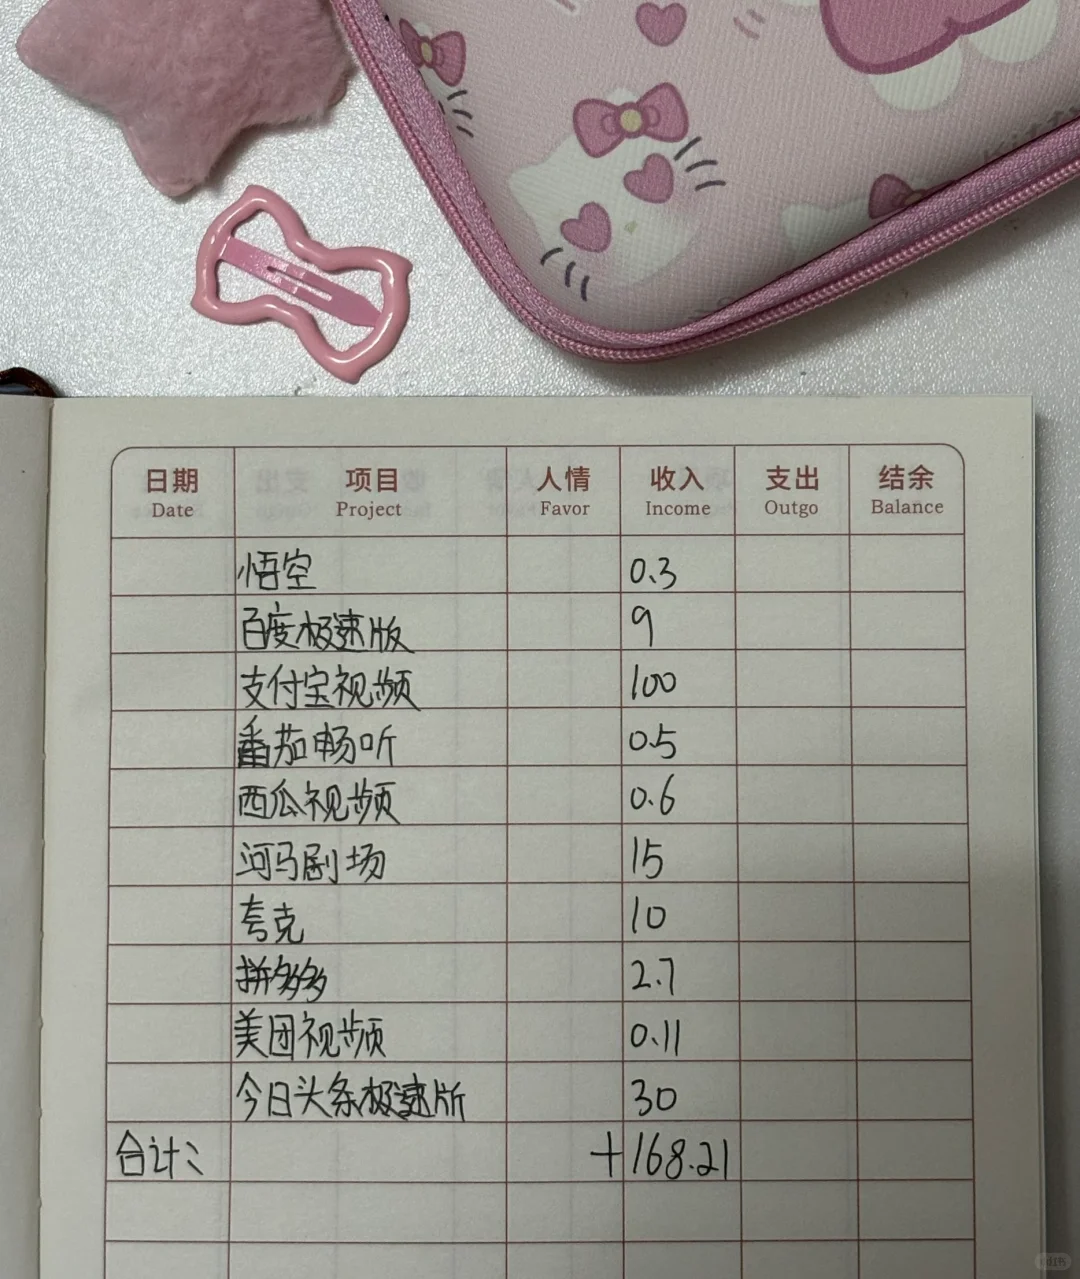 日期 项目 人情 收入 支出 结余
Date Project Favor Income Outgo Balance
悟空 0.3
百度极速版 9
支付宝视频 100
番茄畅听 0.5
西瓜视频 0.6
河马剧场 15
夸克 10
拼多多 2.7
美团视频 0.11
今日头条极速版 30
合计: +168.21